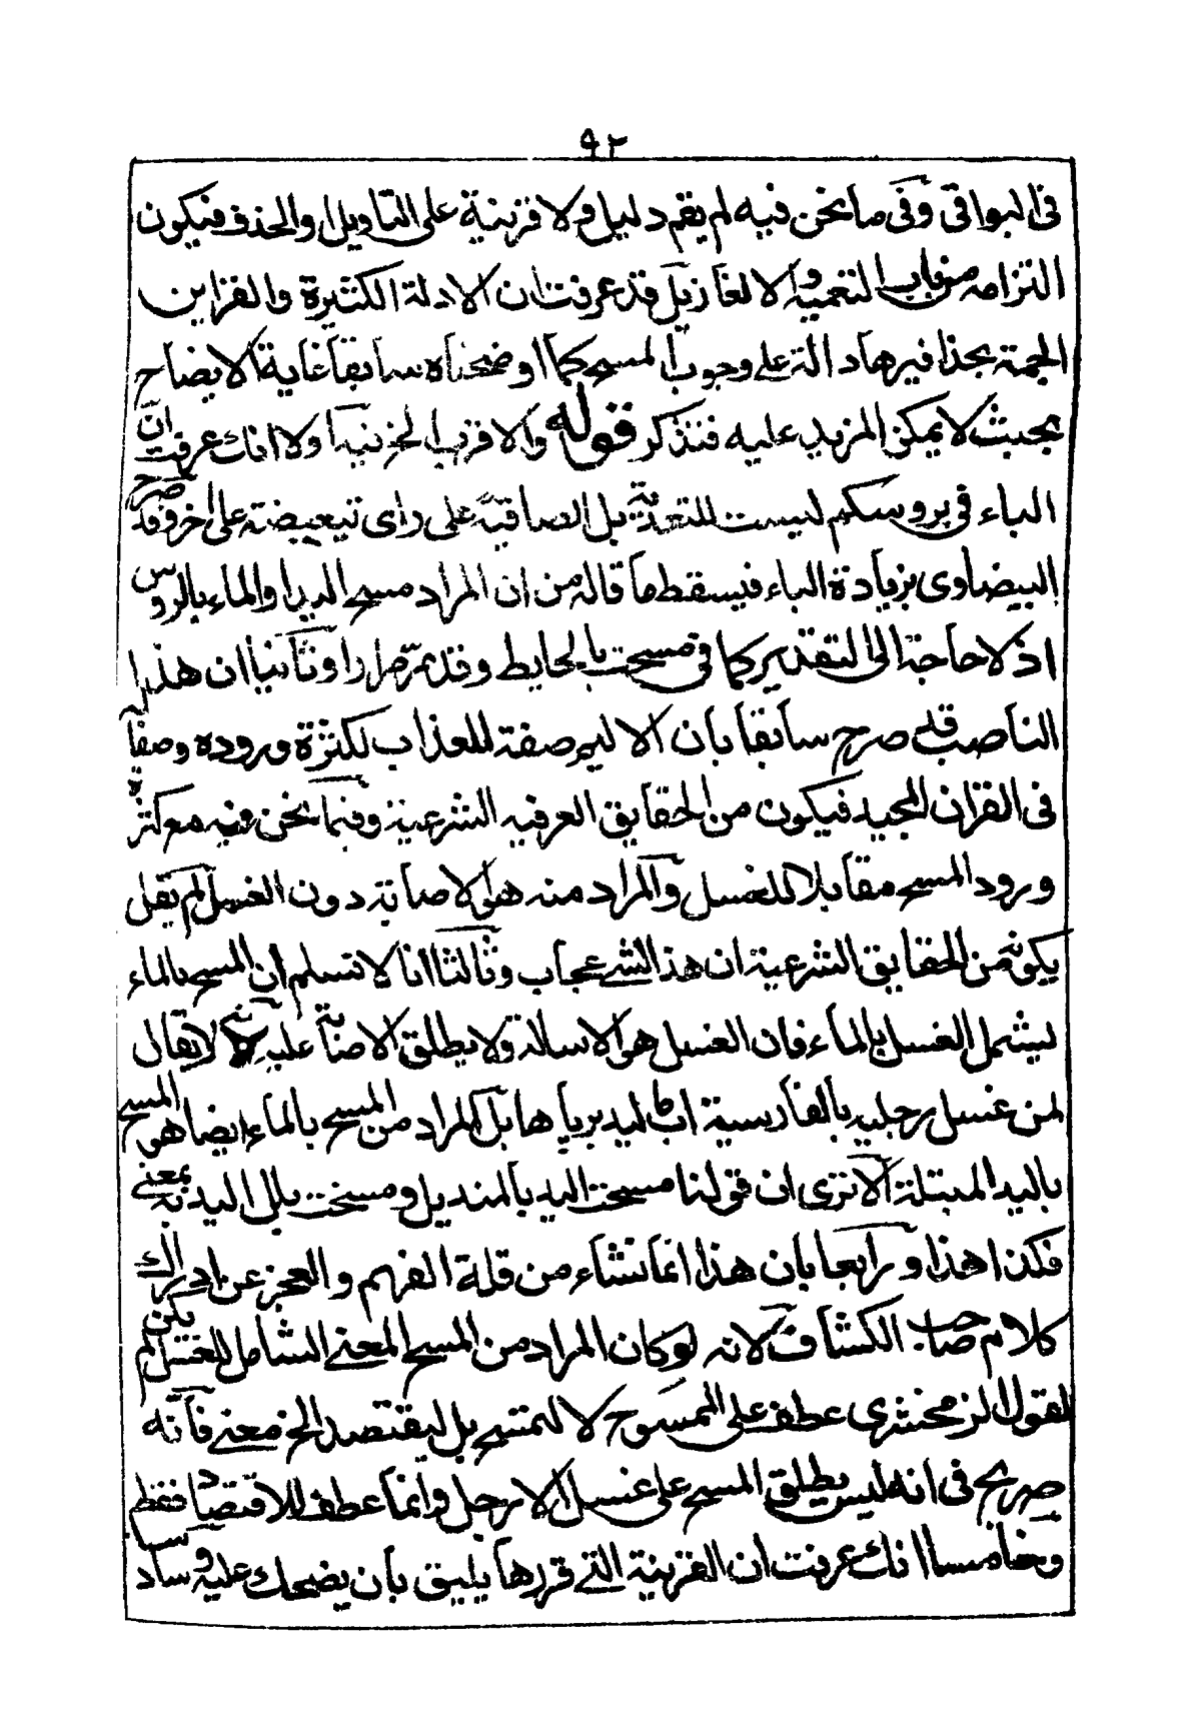 ٩٢
فى البواقى وفى ما نحن فيه لم يقم دليل ولا قرينة على التاويل والحذف فيكون
التزامه من باب التعمية والالغاز بل قد عرفت ان الادلة الكثيرة والقراين
الجمة بحذافيرها دالة على وجوب المسح كما اوضحناه سابقا غاية الايضاح
بحيث لا يمكن المزيد عليه فتذكر قوله والاقرب الخ فيه اولا انك عرفت ان
الباء فى بروسكم ليست للتعدية بل الصاقية على راى تبعيضة على اخر وقد صرح
البيضاوى بزيادة الباء فيسقط ما قاله من ان المراد مسح اليد او الماء بالروس
اذ لا حاجة الى التقدير كما فى مسحت بالحايط وقد مر مرارا وثانيا ان هذا
الناصب قد صرح سابقا بان الاليم صفة للعذاب لكثرة وروده وصفا له
فى القران المجيد فيكون من الحقايق العرفيه الشرعية وفيما نحن فيه مع كثرة
ورود المسح مقابلا للغسل والمراد منه هو الاصابة دون الغسل لم يقل
يكونه من الحقايق الشرعية ان هذا لشئ عجاب وثالثا انا لا نسلم ان المسح بالماء
يشمل الغسل بالماء فان الغسل هو الاسالة ولا يطلق الاصابة عليه لا يقال
لمن غسل رجليه بالفارسية اب ماليد بر پاها بل المراد من المسح بالماء ايضا هو المسح
باليد المبتلة الا ترى ان قولنا مسحت اليد بالمنديل ومسحت بلل اليد به بمعنى
فكذا هذا ورابعا بان هذا انما نشاء من قلة الفهم والعجز عن ادراك
كلام صاحب الكشاف لانه لو كان المراد من المسح المعنى الشامل للغسل لم يكن
لقول الزمخشرى عطف على الممسوح لا لتمسح بل ليقتصد الخ معنى فانه
صريح فى انه ليس يطلق المسح على غسل الارجل وانما عطف للاقتصاد فقط
وخامسا انك عرفت ان القرينة التى قررها يليق بان يضحك عليه وسادسا